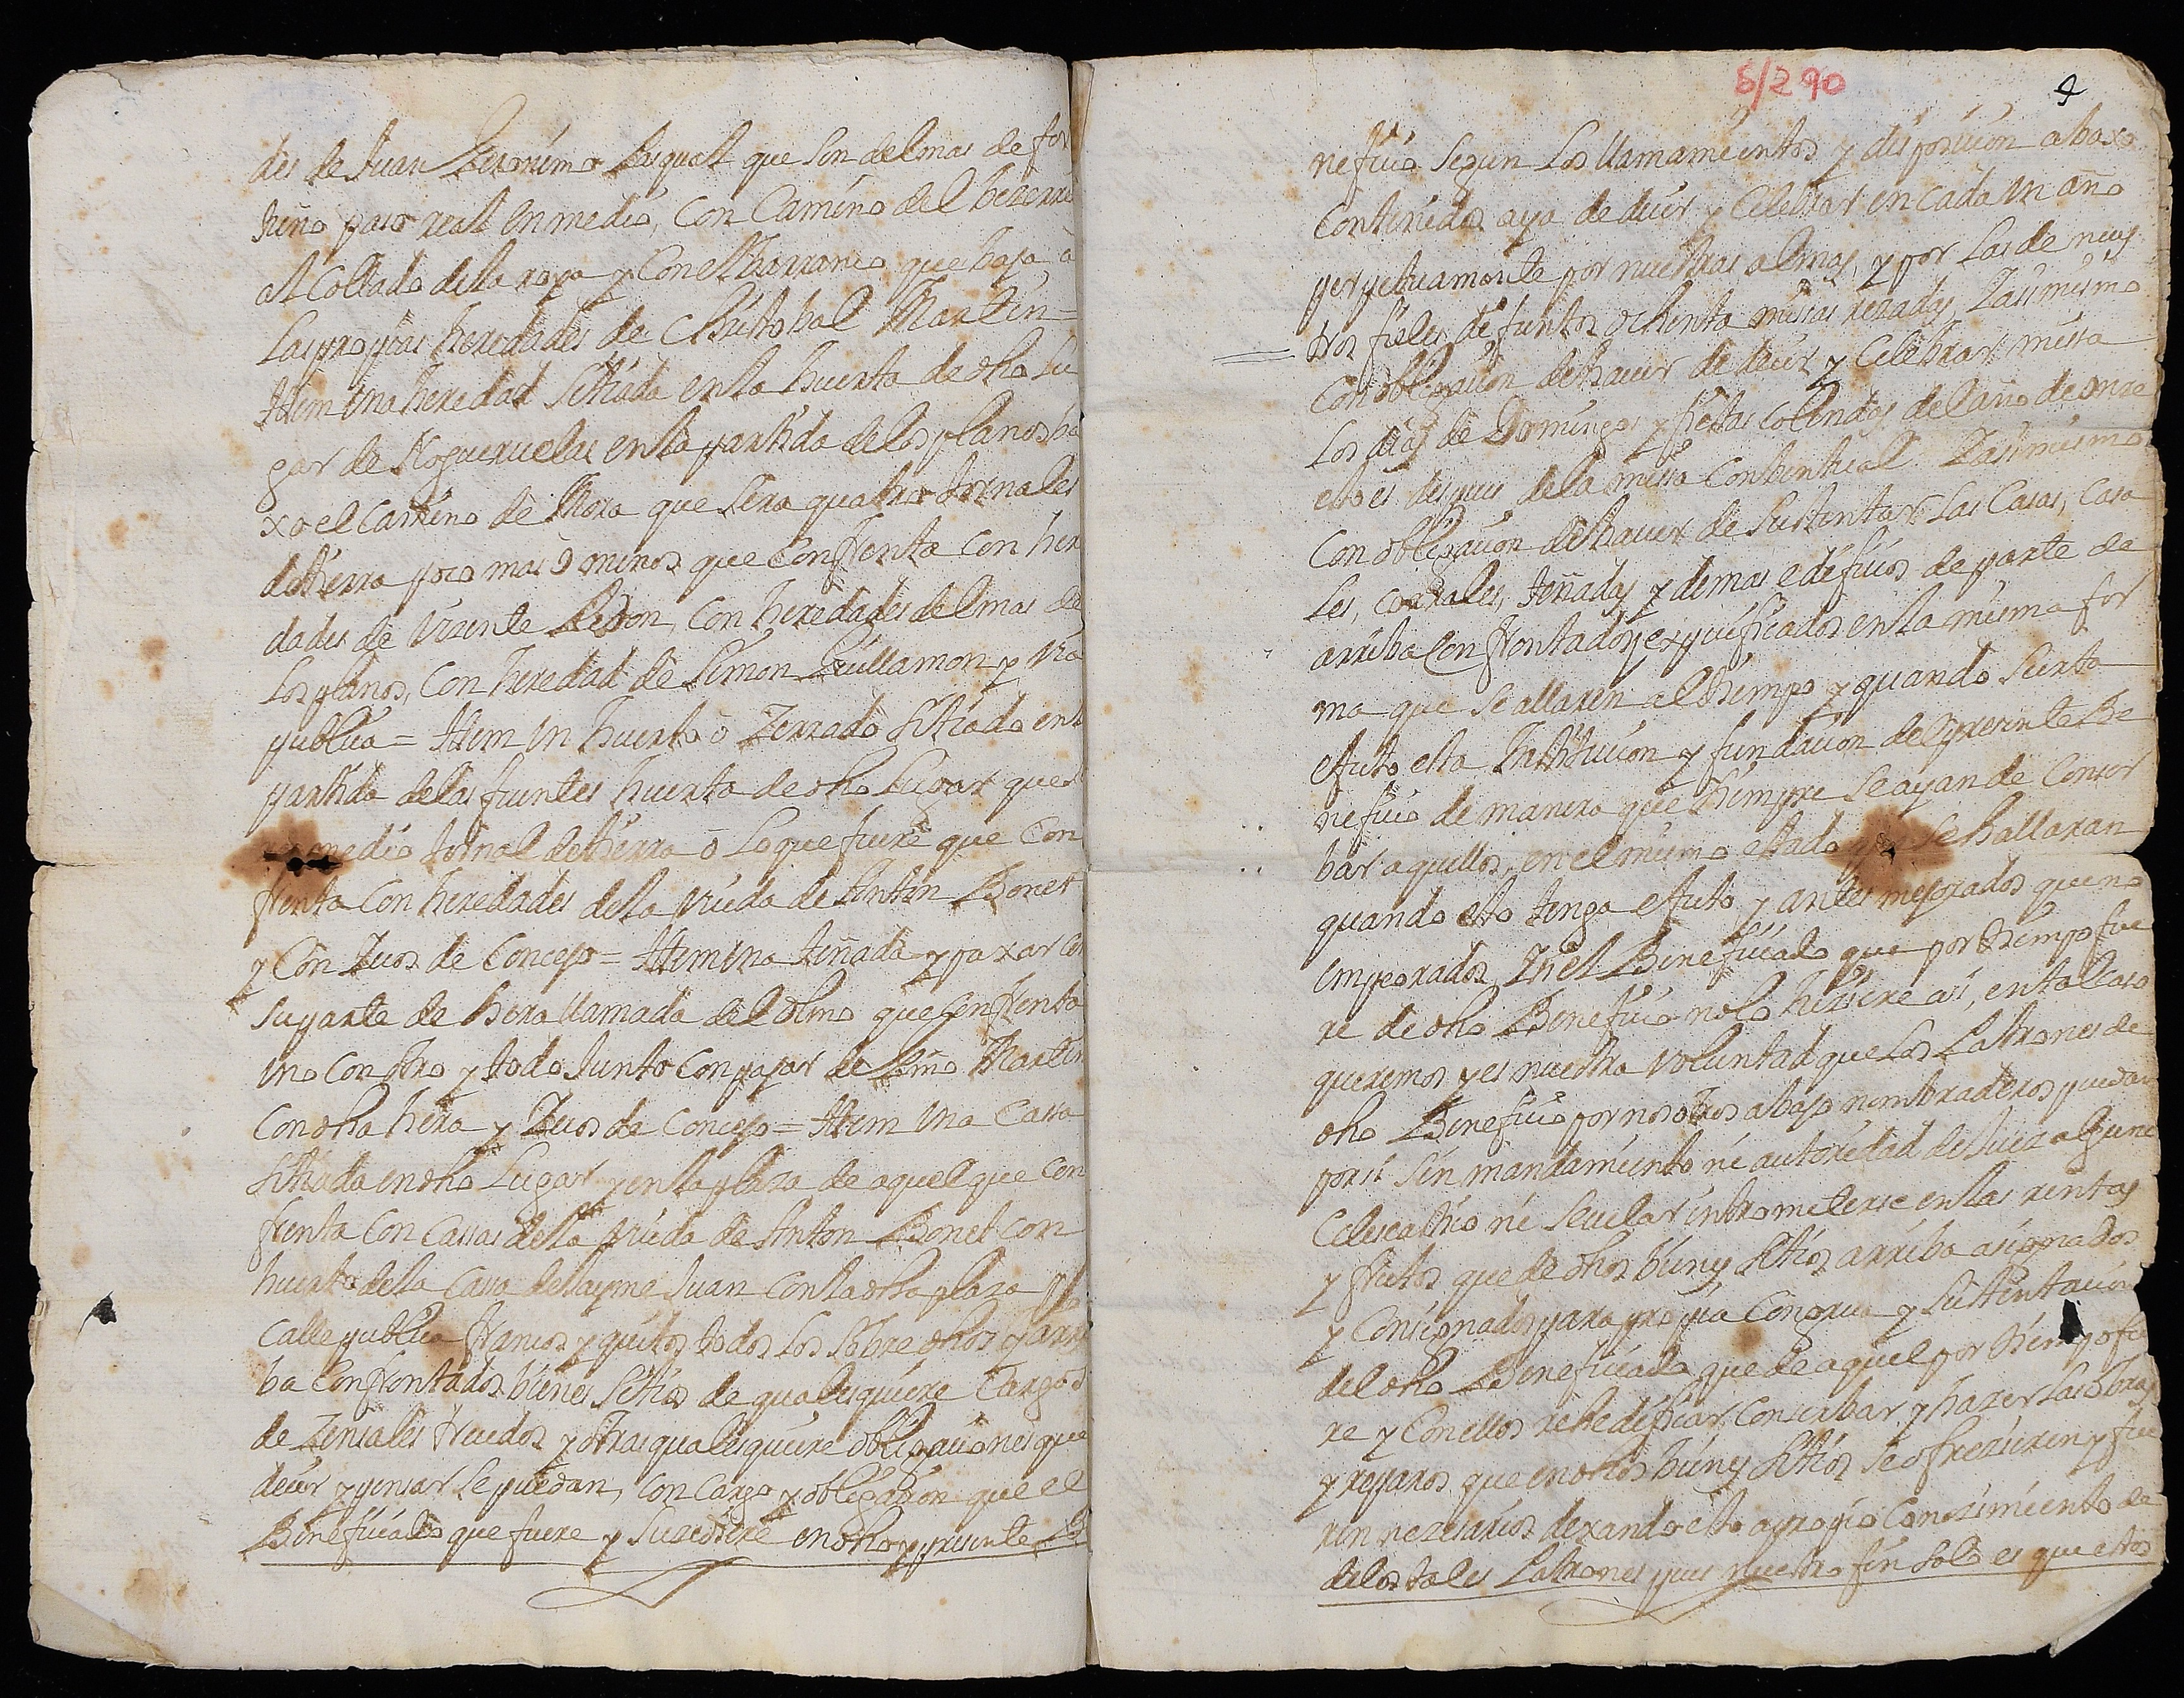 des de Juan Geronimo Pasqual que son del mas de for
tuño paso real en medio, con Camino del bezerre
al Collado de la roya y con el barranco que baja a
las propias heredades de Christobal Martin =
Ittem una heredad sitiada en la huerta de dho Lu
gar de Nogueruelas en la partida de los planos ba
xo el camino de Mora que sera quatro jornales
de tierra poco mas ò menos que confrenta con here
dades de Vizente Redon, con heredades del mas de
los planos, con heredad de Simon Guillamon y via
publica = Ittem un huerto ò Zerrado sitiado en la
partida de las fuentes huerta de dho Lugar que
medio jornal de tierra ò lo que fuere que con
frenta con heredades de la Viuda de Anton Bonet
y con Zuos de Concejo = Ittem una teñada y paxar con
su parte de hera llamada del olmo que confrenta
uno con otro y todo junto con pajar de Martin
con dha hera y Zuos de Concejo = Ittem una Cassa
sitiada en dho Lugar y en la plaza de aquel que con
frenta con cassas de la Viuda de Anton Bonet con
huerto de la Casa de Jayme Juan con la dha plaza y
calle publica francos y quitos todos los sobre dhos y arri
ba confrontados bienes sitios de qualesquiere Cargos
de Zensales treudos y otras qualesquiere obligaciones que
decir y pensar se puedan, con cargo y obligazion que el
Beneficiado que fuere y sucediere en dho y presente Be
5/290
9
neficio segun los llamamientos y disposicion abaxo
contenidos aya de decir y celebrar en cada un año
perpetuamente por nuestras almas, y por las de nues
tros fieles difuntos ochenta missas rezadas Zasimismo
con obligacion de haver de decir y celebrar missa
los dias de Domingos y fiestas colendas del año de onze
esto es despues de la missa conbentual. Zasimismo
con obligacion de haver de sustentar las Casas, Casa
les, corrales, teñadas y demas edificios de parte de
arriba confrontados, expecificados en la misma for
ma que se allaren al tiempo y quando surta
efecto esta Institucion y fundacion del presente Be
neficio de manera que siempre se ayan de conser
bar aquellos, en el mismo estado que se hallaran
quando esto tenga efecto y antes mejorados que no
empeorados Zn el Beneficiado que por tiempo fue
re de dho Beneficio no lo hiziere asi, en tal caso
queremos y es nuestra voluntad que los Patrones de
dho Beneficio por nosotros abajo nombraderos puedan
por si sin mandamiento ni autoridad de Juez alguno
eclesiastico ni secular intrometerse en las rentas
y frutos que de dhos bienes sitios arriba asignados
y consignados para propia congrua y sustentacion
del dho Beneficiado que de aquel por tiempo fue
re y con ellos rehedificar, conserbar y hazer las obras
y reparos que en dhos bienes sitios se ofrezieren y fue
ren nezesarios dexando esto a propio conozimiento de
de los tales Patrones pues nuestro fin solo es que estos